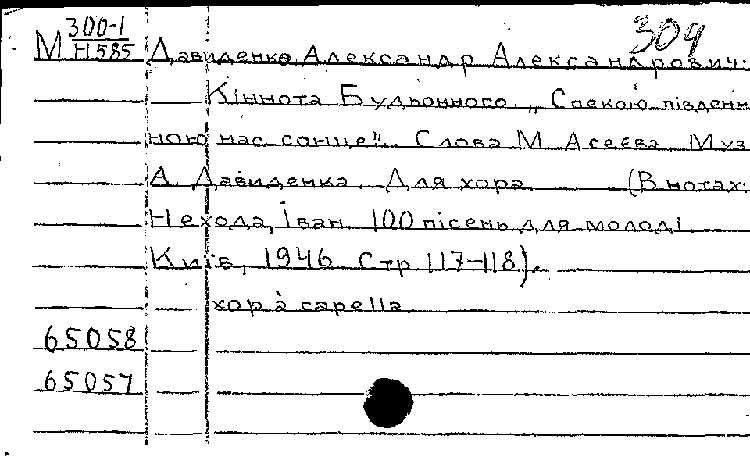 300-1 304
М Н585 Давиденко, Александр Александрович.
Кіннота Будьонного „Спекою південн
ного нас сонце". Слова М Асеєва Муз
А. Давиденка. Для хора (В нотах:
Нехода, Іван. 100 пісень для молоді
Київ, 1946 Стр 117-118).
хор à capella
65058
65057